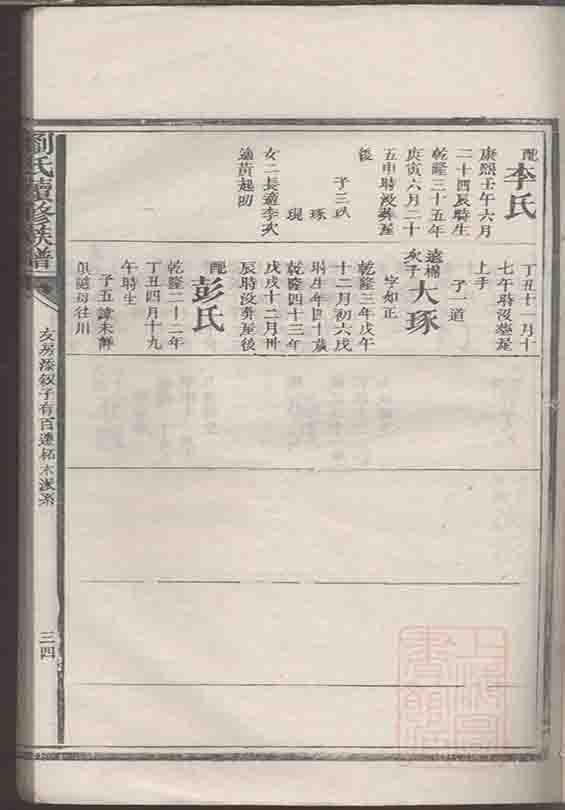 配
李氏
康熙壬午六月
二十四辰時生
乾隆三十五年
庚寅六月二十
五申時没葬屋
後
子三玖
琢
現
女二長適李次
適黃起昉
丁丑十一月十
七午時没葬屋
上手
子一道
遠楊
次子
大琢
字如正
乾隆三年戊午
十二月初六戌
時生年四十歲
乾隆四十三年
戊戌十二月卅
辰時没葬屋後
配
彭氏
乾隆二十二年
丁丑四月十九
午時生
子五諱未詳
俱隨母往川
劉氏續修族譜
友房添釵子有百蓮柘木派系
三四
上海圖
書館藏